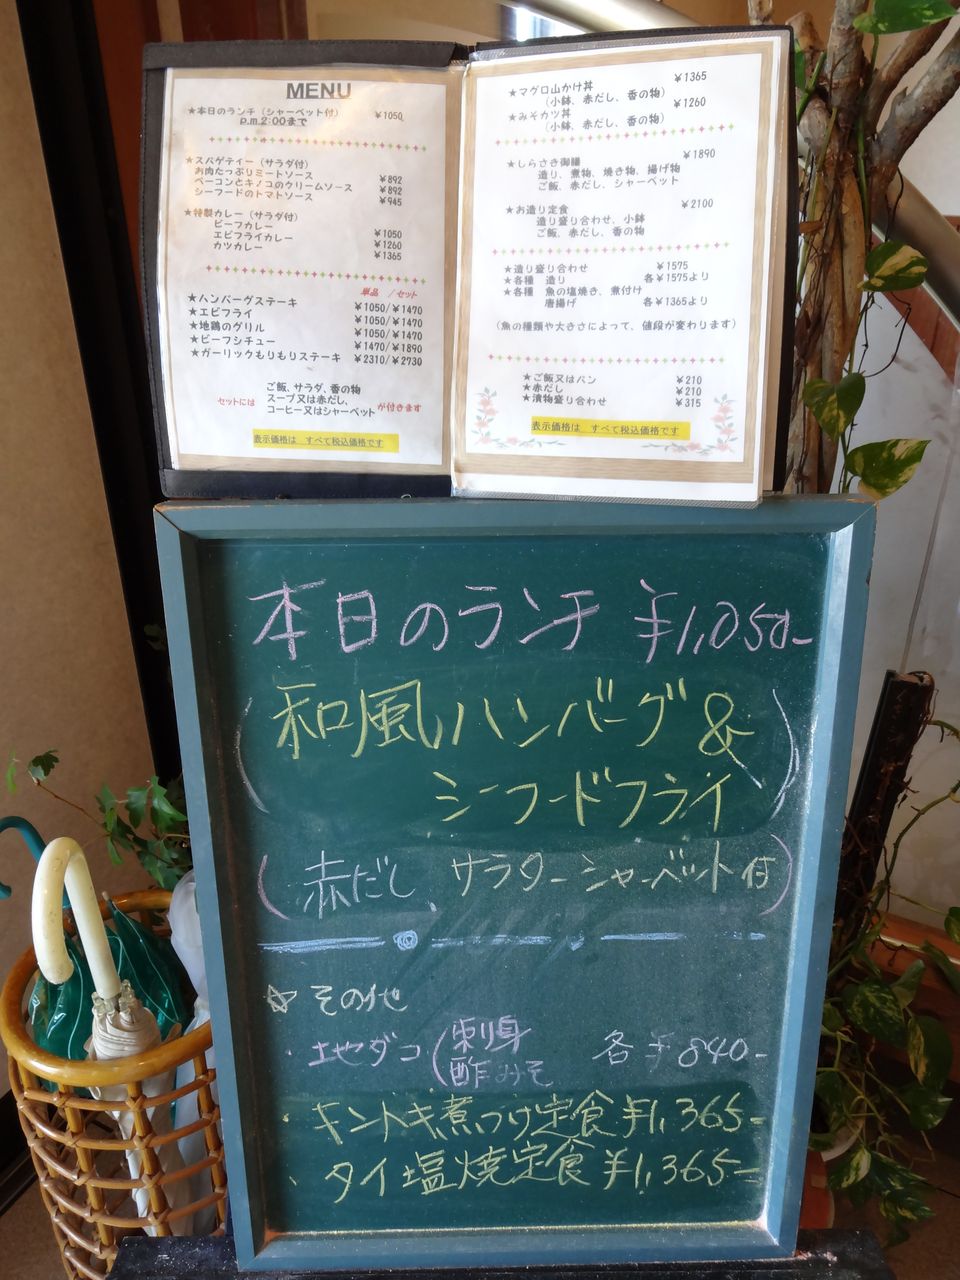 MENU
★本日のランチ（シャーベット付） ￥1050
p.m.2:00まで
★スパゲティー（サラダ付）
お肉たっぷりミートソース ￥892
ベーコンとキノコのクリームソース ￥892
シーフードのトマトソース ￥945
★特製カレー（サラダ付）
ビーフカレー ￥1050
エビフライカレー ￥1260
カツカレー ￥1365
単品／セット
★ハンバーグステーキ ￥1050/￥1470
★エビフライ ￥1050/￥1470
★地鶏のグリル ￥1050/￥1470
★ビーフシチュー ￥1470/￥1890
★ガーリックもりもりステーキ ￥2310/￥2730
ご飯、サラダ、香の物
セットには スープ又は赤だし、 が付きます
コーヒー又はシャーベット
表示価格は すべて税込価格です
★マグロ山かけ丼 ￥1365
（小鉢、赤だし、香の物）
★みそカツ丼 ￥1260
（小鉢、赤だし、香の物）
★しらさき御膳 ￥1890
造り、煮物、焼き物、揚げ物
ご飯、赤だし、シャーベット
★お造り定食 ￥2100
造り盛り合わせ、小鉢
ご飯、赤だし、香の物
★造り盛り合わせ ￥1575
★各種 造り 各￥1575より
★各種 魚の塩焼き、煮付け
唐揚げ 各￥1365より
（魚の種類や大きさによって、値段が変わります）
★ご飯又はパン ￥210
★赤だし ￥210
★漬物盛り合わせ ￥315
表示価格は すべて税込価格です
本日のランチ ￥1,050-
（和風ハンバーグ&
シーフードフライ）
（赤だし、サラダ-シャーベット付）
☆その他
・地ダコ（刺身 各￥840-
酢みそ
・キントキ煮つけ定食￥1,365-
、タイ塩焼定食￥1,365-